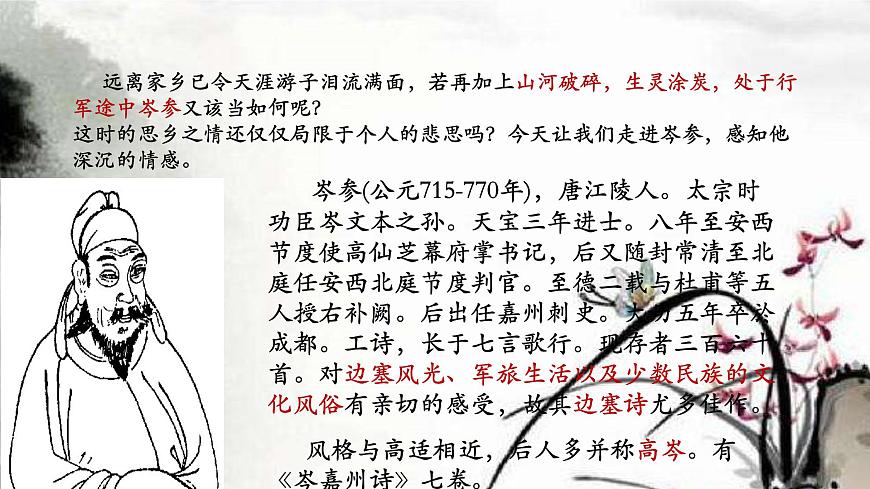 远离家乡已令天涯游子泪流满面，若再加上山河破碎，生灵涂炭，处于行
军途中岑参又该当如何呢？
这时的思乡之情还仅仅局限于个人的悲思吗？今天让我们走进岑参，感知他
深沉的情感。
岑参(公元715-770年)，唐江陵人。太宗时
功臣岑文本之孙。天宝三年进士。八年至安西
节度使高仙芝幕府掌书记，后又随封常清至北
庭任安西北庭节度判官。至德二载与杜甫等五
人授右补阙。后出任嘉州刺史。大历五年卒於
成都。工诗，长于七言歌行。现存者三百六十
首。对边塞风光、军旅生活以及少数民族的文
化风俗有亲切的感受，故其边塞诗尤多佳作。
风格与高适相近，后人多并称高岑。有
《岑嘉州诗》七卷。